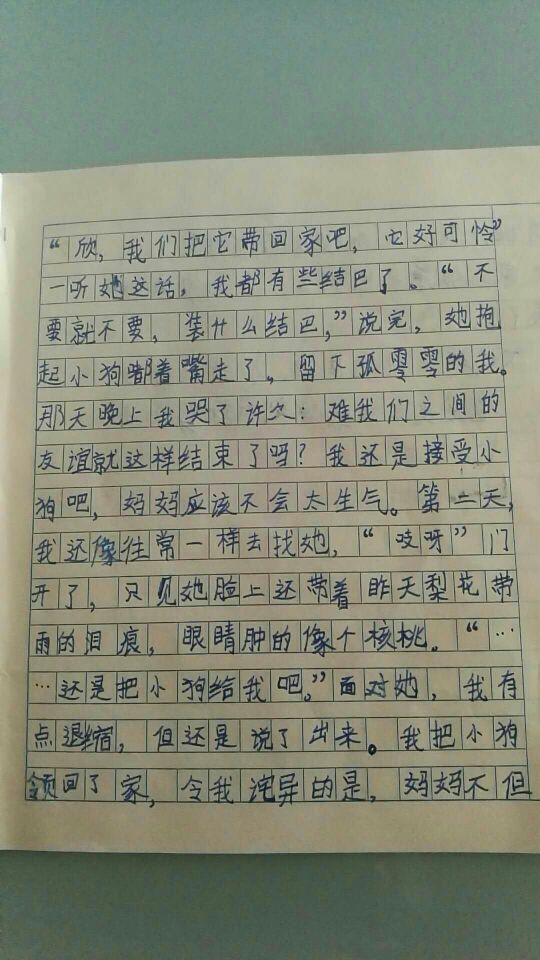 “欣，我们把它带回家吧，它好可怜”
一听她这话，我都有些结巴了。“不
要就不要，装什么结巴，”说完，她抱
起小狗都着嘴走了，留下孤零零的我。
那天晚上我哭了许久：难我们之间的
友谊就这样结束了吗？我还是接受小
狗吧，妈妈应该不会太生气。第二天，
我还像往常一样去找她，“吱呀”门
开了，只见她脸上还带着昨天梨花带
雨的泪痕，眼睛肿的像个核桃。“…
…还是把小狗给我吧。”面对她，我有
点退缩，但还是说了出来。我把小狗
领回了家，令我诧异的是，妈妈不但